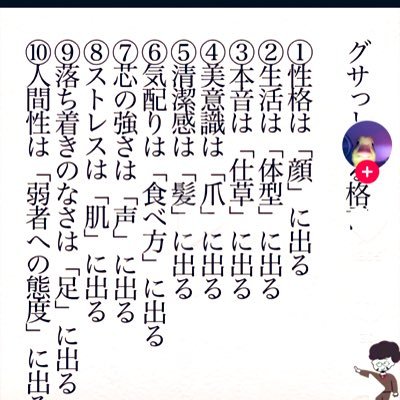 グサっ
格
①性格は「顔」に出る
②生活は「体型」に出る
③本音は「仕草」に出る
④美意識は「爪」に出る
⑤清潔感は「髪」に出る
⑥気配りは「食べ方」に出る
⑦芯の強さは「声」に出る
⑧ストレスは「肌」に出る
⑨落ち着きのなさは「足」に出る
⑩人間性は「弱者への態度」に出る